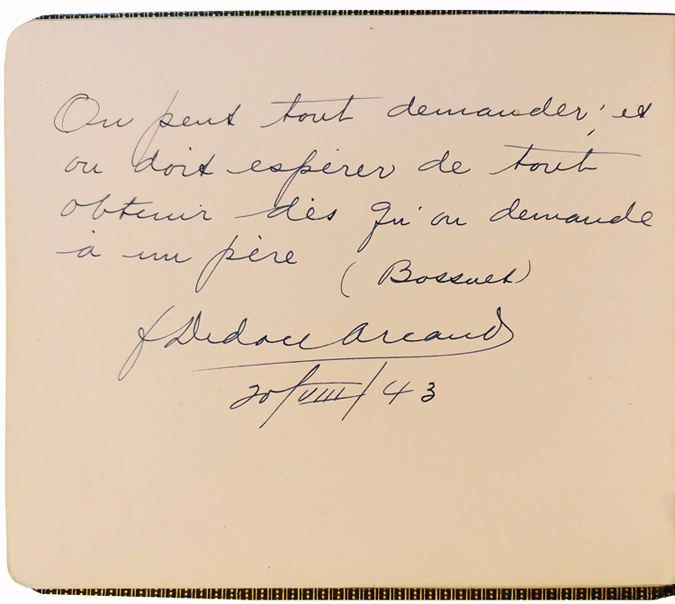 On peut tout demander, et
on doit espérer de tout
obtenir dès qu'on demande
à un père (Bossuet)
Arcand
20/VIII/43